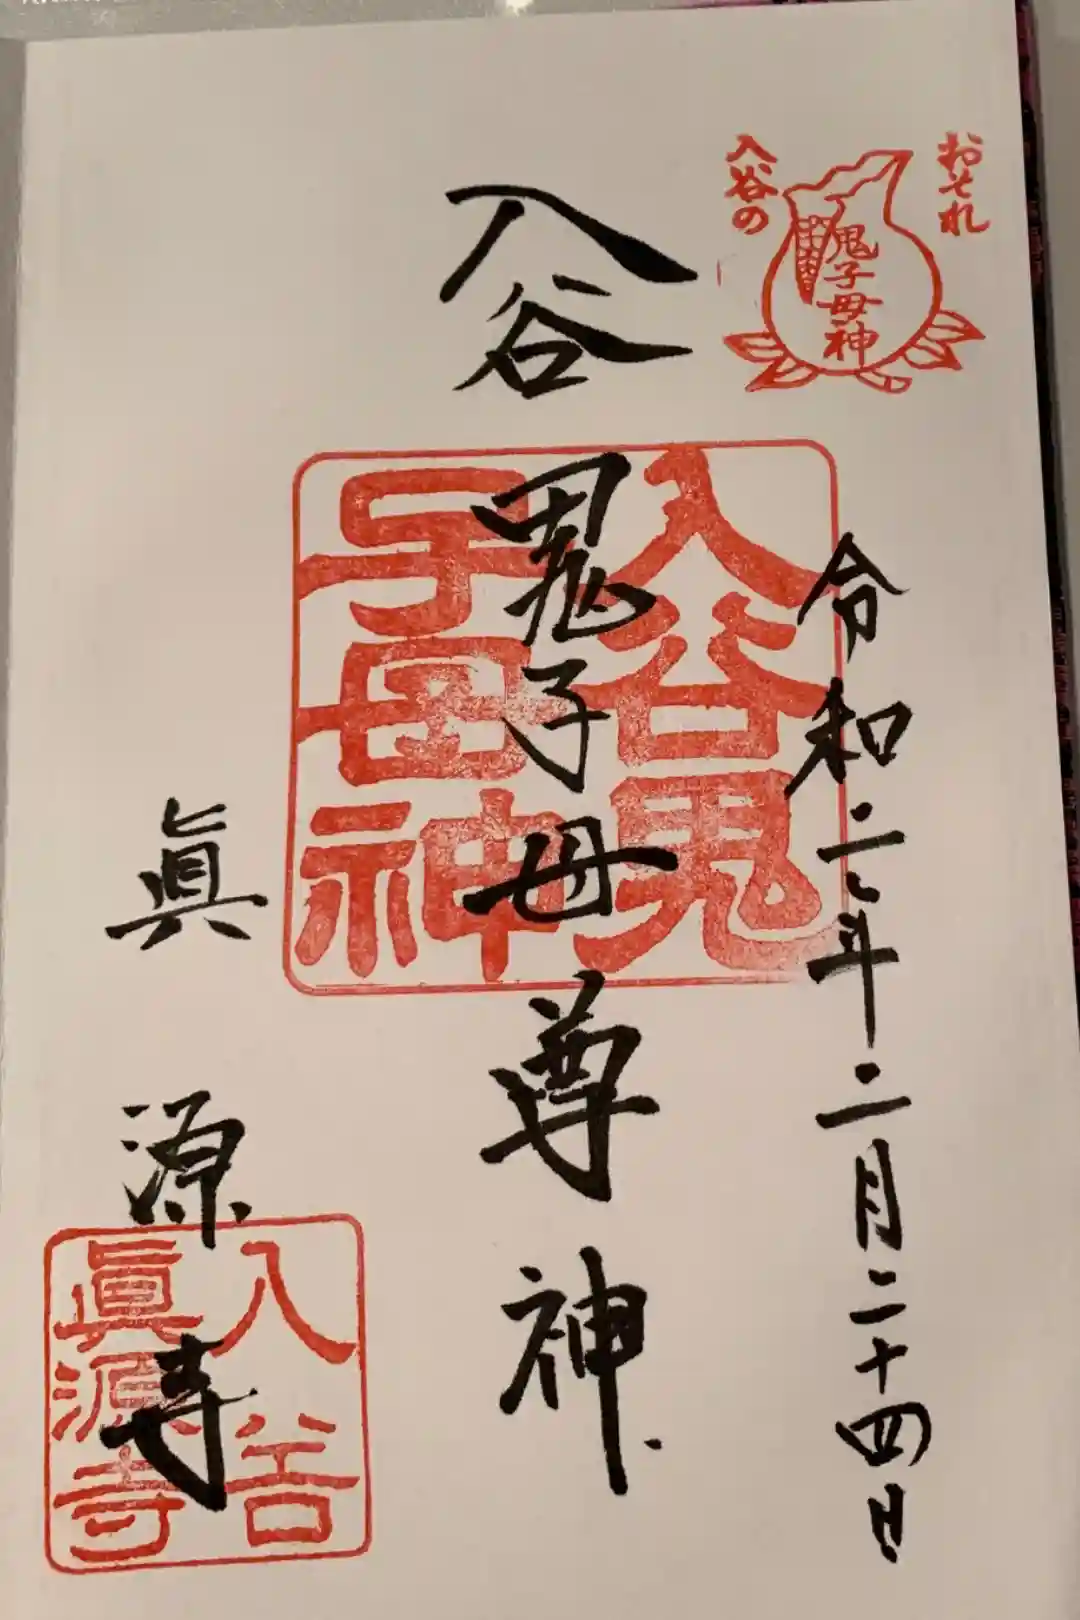 おそれ
入谷の
鬼子母神
令和二年二月二十四日
入谷鬼子母尊神
入谷鬼
子母神
眞源寺
入谷
眞源寺